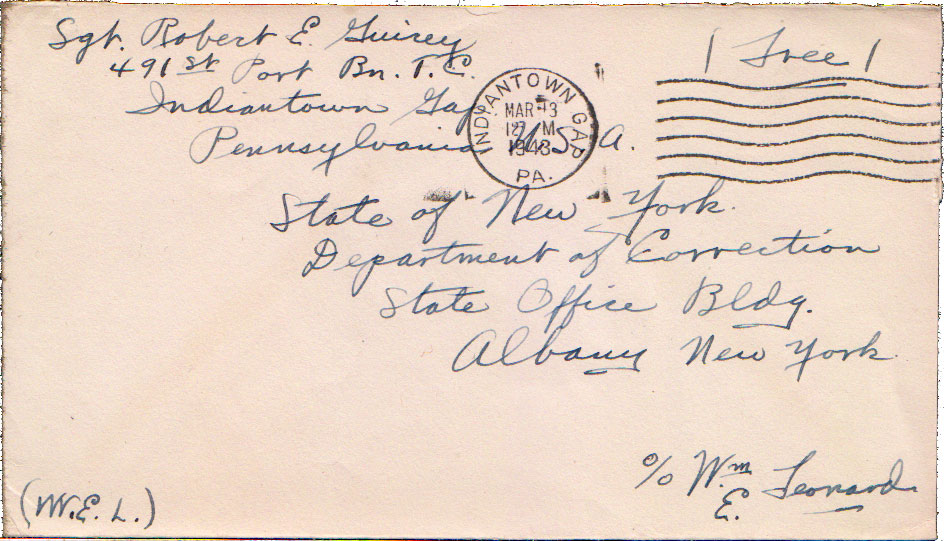 Sgt. Robert E. Guirey
491st Port Bn. T.C.
Indiantown Gap
Pennsylvania U.S.A.
INDIANTOWN GAP
MAR 13
12 M
1943
PA.
Free
State of New York.
Department of Correction
State Office Bldg.
Albany New York.
c/o Wm E. Leonard
(W.E.L.)